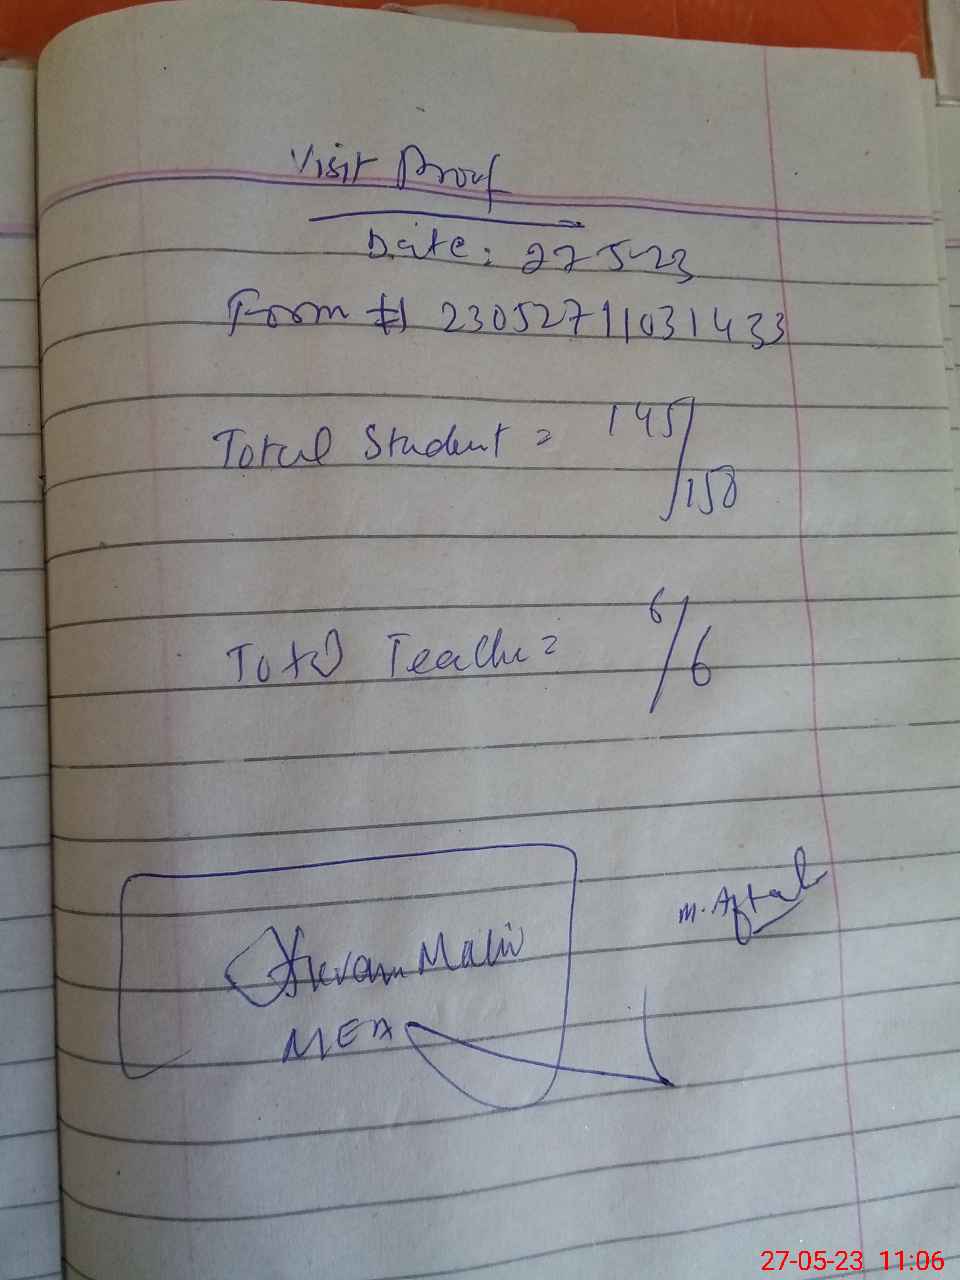 Visit Proof
Date: 27-5-23
Form # 23052711031433
Total Student = 145/158
Total Teacher = 6/6
M. Aftab
MEA
27-05-23 11:06